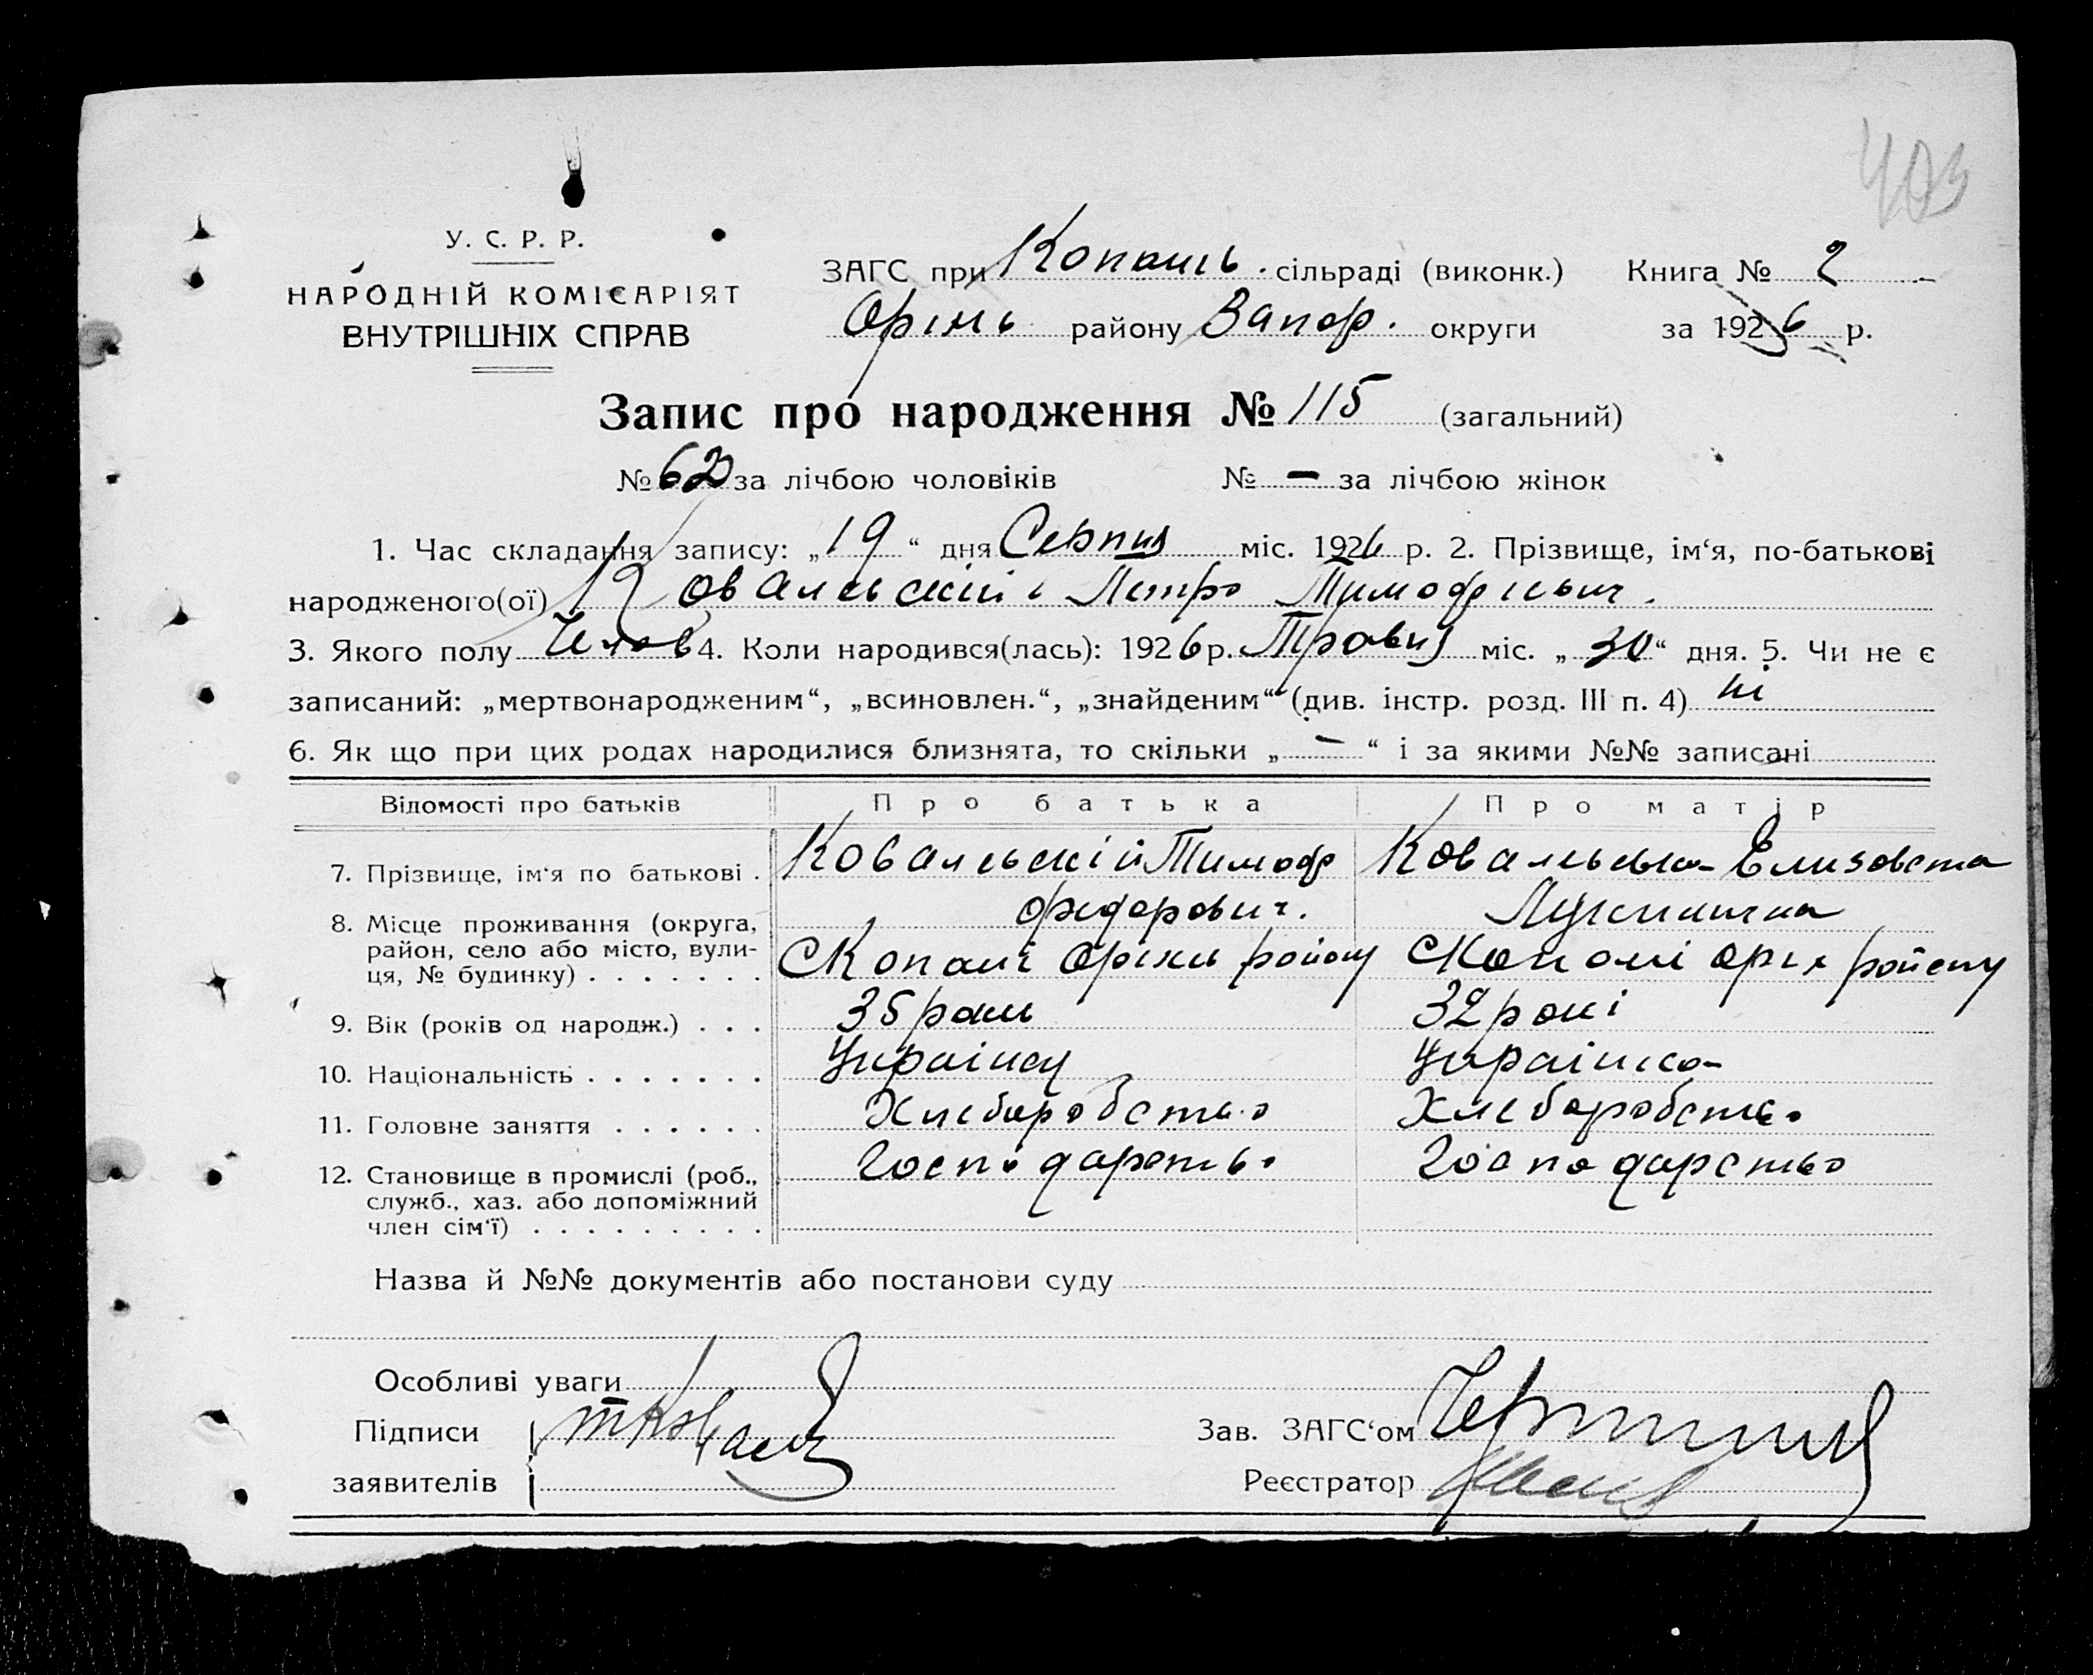 403
У. С. Р. Р.
НАРОДНІЙ КОМІСАРІЯТ
ВНУТРІШНІХ СПРАВ
ЗАГС при Копань. сільраді (виконк.) Книга № 2
Оріхь району Запор. округи за 1926 р.
Запис про народження № 115 (загальний)
№ 62 за лічбою чоловіків № – за лічбою жінок
1. Час складання запису: „19“ дня Серпня міс. 1926 р. 2. Прізвище, ім‘я, по-батькові
народженого(ої) Ковальскій Петро Тимофієвич.
3. Якого полу Челов 4. Коли народився(лась): 1926 р. Травня міс. „30“ дня. 5. Чи не є
записаний: „мертвонародженим“, „всиновлен.“, „знайденим“ (див. інстр. розд. III п. 4) ні
6. Як що при цих родах народилися близнята, то скільки „–“ і за якими №№ записані
Відомості про батьків Про батька Про матір
7. Прізвище, ім‘я по батькові . Ковальскій Тимоф Ковальська Елизовета
Федорович.
8. Місце проживання (округа, район, село або місто, вулиця, № будинку) . . . . . . . С Копані Оріхи району С Копані Оріх району
9. Вік (років од народж.) . . . 35 роки 32 рокі
10. Національність . . . . . . . Українец Українка
11. Головне заняття . . . . . . Хлеборобство Хлеборобство
12. Становище в промислі (роб., служб., хаз. або допоміжний член сім‘ї) . . . . . . . . . Господарство Господарство
Назва й №№ документів або постанови суду
Особливі уваги
Підписи
заявителів
Зав. ЗАГС‘ом
Реєстратор